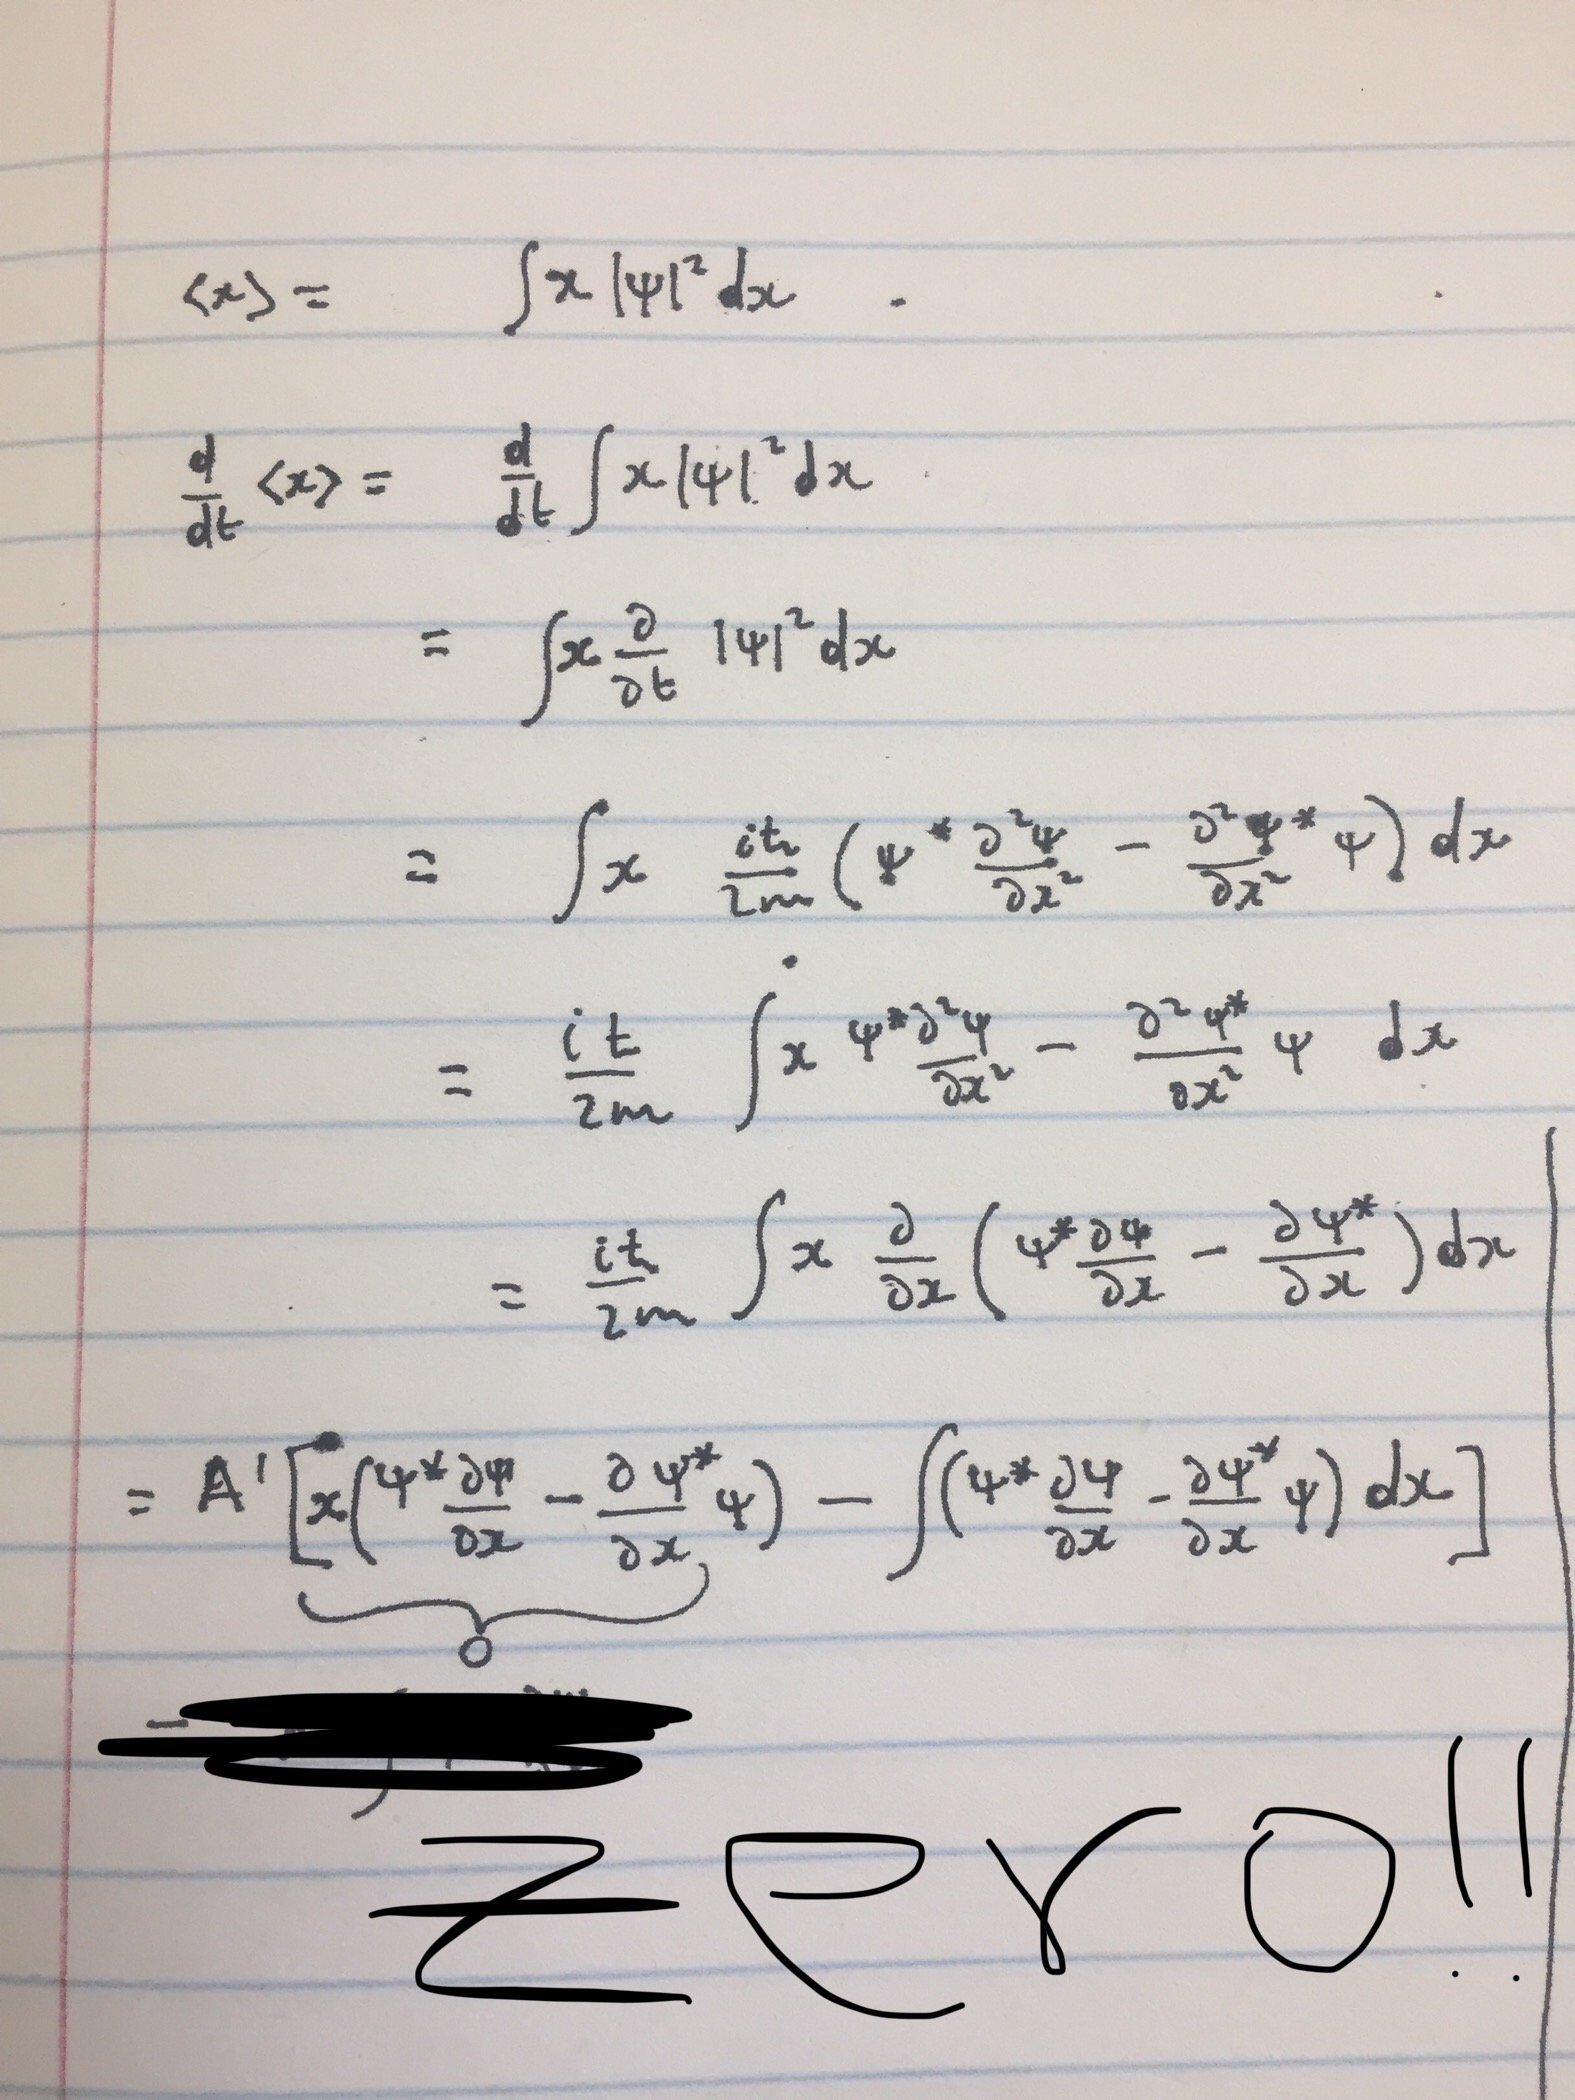 ⟨x⟩ = ∫ x |ψ|² dx .
d/dt ⟨x⟩ = d/dt ∫ x |ψ|² dx
= ∫ x ∂/∂t |ψ|² dx
= ∫ x iħ/2m (ψ* ∂²ψ/∂x² − ∂²ψ*/∂x² ψ) dx
= it/2m ∫ x ψ* ∂²ψ/∂x² − ∂²ψ*/∂x² ψ dx
= iħ/2m ∫ x ∂/∂x (ψ* ∂ψ/∂x − ∂ψ*/∂x) dx
= A' [x(ψ* ∂ψ/∂x − ∂ψ*/∂x ψ) − ∫(ψ* ∂ψ/∂x − ∂ψ*/∂x ψ) dx]
0
zero!!